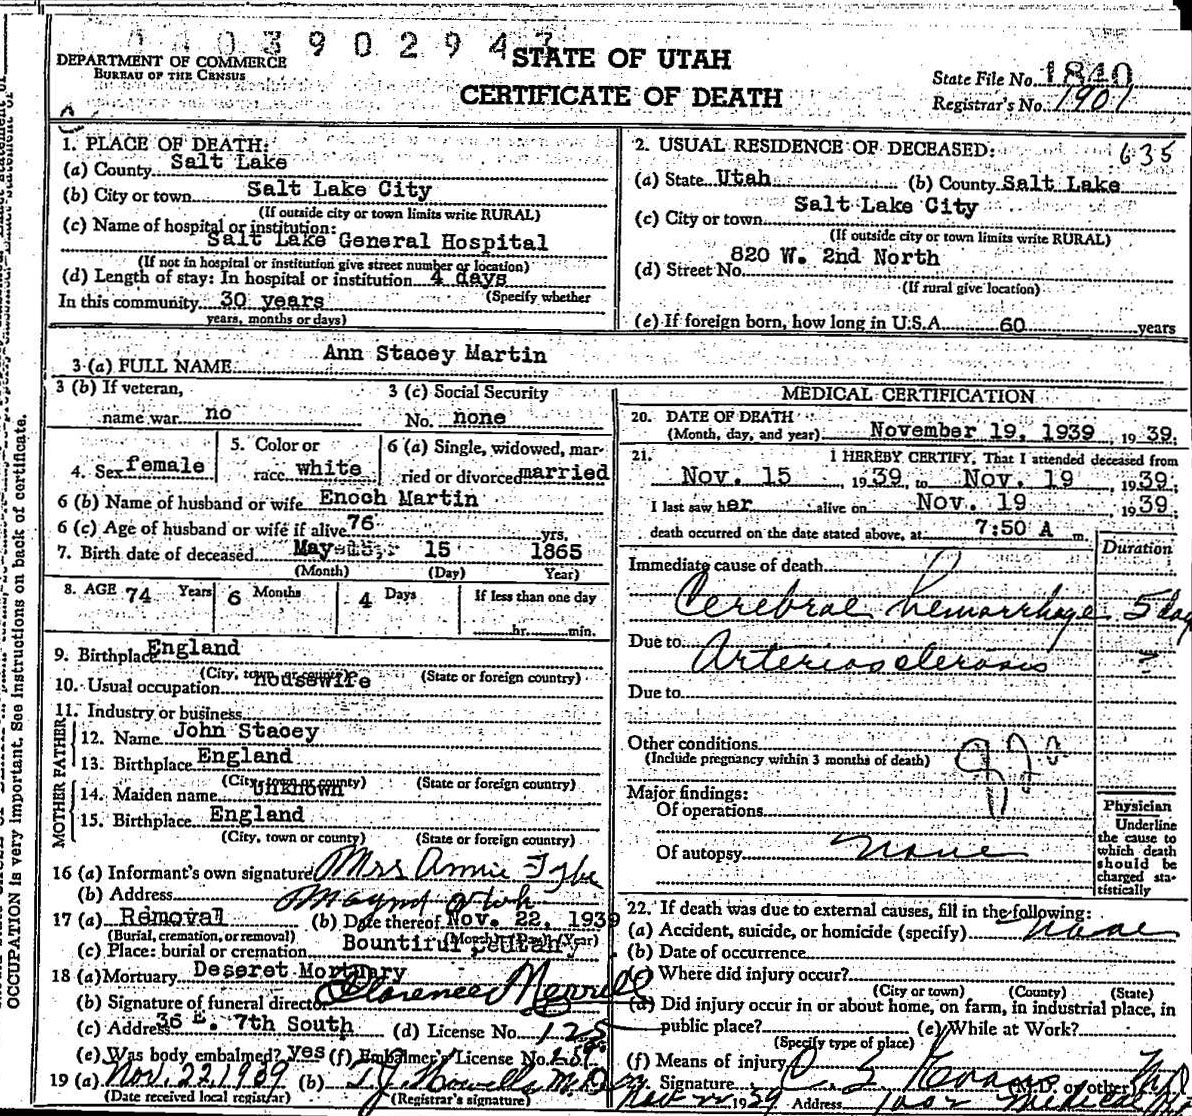 0390294
DEPARTMENT OF COMMERCE
BUREAU OF THE CENSUS
STATE OF UTAH
CERTIFICATE OF DEATH
State File No. 1840
Registrar's No. 1901
1. PLACE OF DEATH:
(a) County Salt Lake
(b) City or town Salt Lake City
(If outside city or town limits write RURAL)
(c) Name of hospital or institution:
Salt Lake General Hospital
(If not in hospital or institution give street number or location)
(d) Length of stay: In hospital or institution 4 days
(Specify whether
In this community 30 years
years, months or days)
2. USUAL RESIDENCE OF DECEASED: 635
(a) State Utah (b) County Salt Lake
(c) City or town Salt Lake City
(If outside city or town limits write RURAL)
(d) Street No. 820 W. 2nd North
(If rural give location)
(e) If foreign born, how long in U.S.A. 60 years
3 (a) FULL NAME Ann Stacey Martin
3 (b) If veteran,
name war no
3 (c) Social Security
No. none
4. Sex female
5. Color or
race white
6 (a) Single, widowed, mar-
ried or divorced married
6 (b) Name of husband or wife Enoch Martin
6 (c) Age of husband or wife if alive 76 yrs.
7. Birth date of deceased May 15 1865
(Month) (Day) Year)
8. AGE 74 Years 6 Months 4 Days If less than one day
hr. min.
9. Birthplace England
(City, town or county) (State or foreign country)
10. Usual occupation housewife
11. Industry or business
FATHER
12. Name John Stacey
13. Birthplace England
(City, town or county) (State or foreign country)
MOTHER
14. Maiden name unknown
15. Birthplace England
(City, town or county) (State or foreign country)
16 (a) Informant's own signature Mrs Annie
(b) Address Utah
17 (a) Removal (b) Date thereof Nov. 22, 1939
(Burial, cremation, or removal) (Month) (Day) (Year)
(c) Place: burial or cremation Bountiful
18 (a) Mortuary Deseret Mortuary
(b) Signature of funeral director Clarence Merrill
(c) Address 36 E. 7th South (d) License No. 125
(e) Was body embalmed? yes (f) Embalmer's License No.
19 (a) Nov. 22, 1939 (b) T. J. Howells M.D.
(Date received local registrar) (Registrar's signature)
MEDICAL CERTIFICATION
20. DATE OF DEATH
(Month, day, and year) November 19, 1939, 1939;
21. I HEREBY CERTIFY, That I attended deceased from
Nov. 15, 1939, to Nov. 19, 1939;
I last saw her alive on Nov. 19, 1939;
death occurred on the date stated above, at 7:50 A m.
Duration
Immediate cause of death
Cerebral hemorrhage 5 day
Due to Arteriosclerosis ?
Due to
Other conditions
(Include pregnancy within 3 months of death)
Major findings:
Of operations
Of autopsy none
Physician
Underline
the cause to
which death
should be
charged sta-
tistically
22. If death was due to external causes, fill in the following:
(a) Accident, suicide, or homicide (specify) none
(b) Date of occurrence
(c) Where did injury occur?
(City or town) (County) (State)
(d) Did injury occur in or about home, on farm, in industrial place, in
public place? (e) While at Work?
(Specify type of place)
(f) Means of injury
Signature Evans (M.D. or other) MD
Nov 22 1939 Address 1002 Medical
OCCUPATION is very important. See instructions on back of certificate.